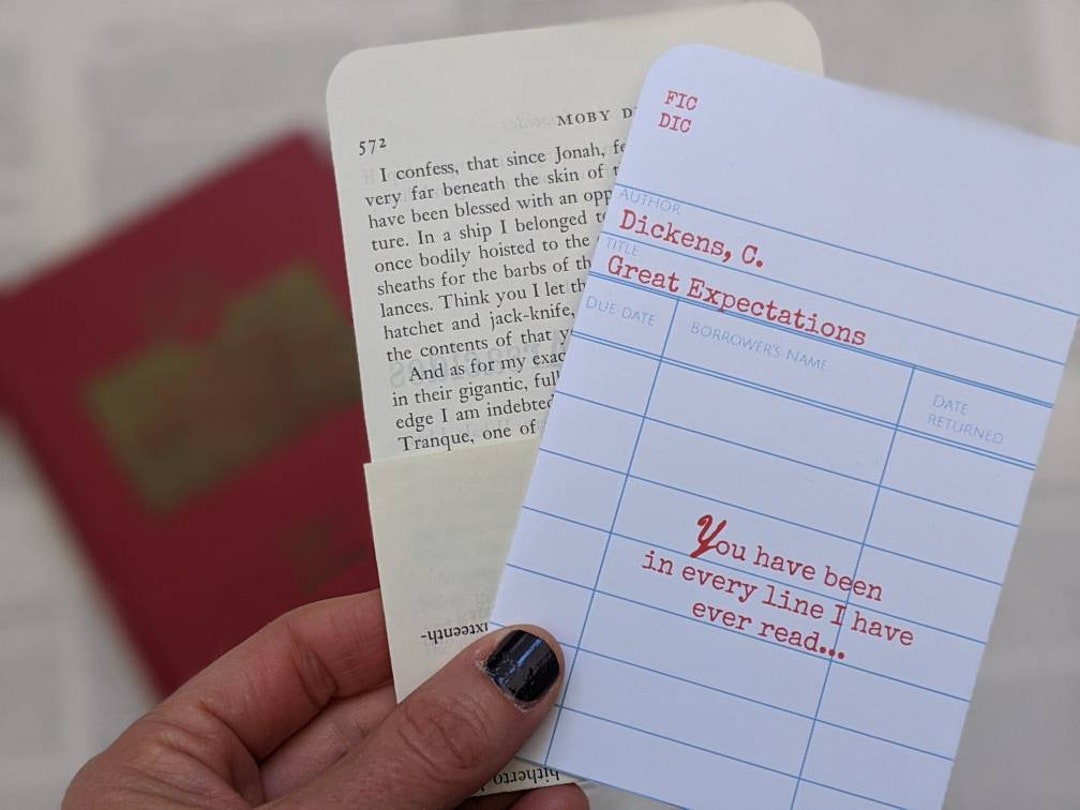 572
MOBY
I confess, that since Jonah,
very far beneath the skin of
have been blessed with an
ture. In a ship I belonged
once bodily hoisted to the
sheaths for the barbs of
lances. Think you I let
hatchet and jack-knife,
the contents of that
And as for my
in their gigantic,
edge I am indebted
Tranque, one of
FIC
DIC
AUTHOR
Dickens, C.
TITLE
Great Expectations
DUE DATE
BORROWER'S NAME
DATE
RETURNED
You have been
in every line I have
ever read...